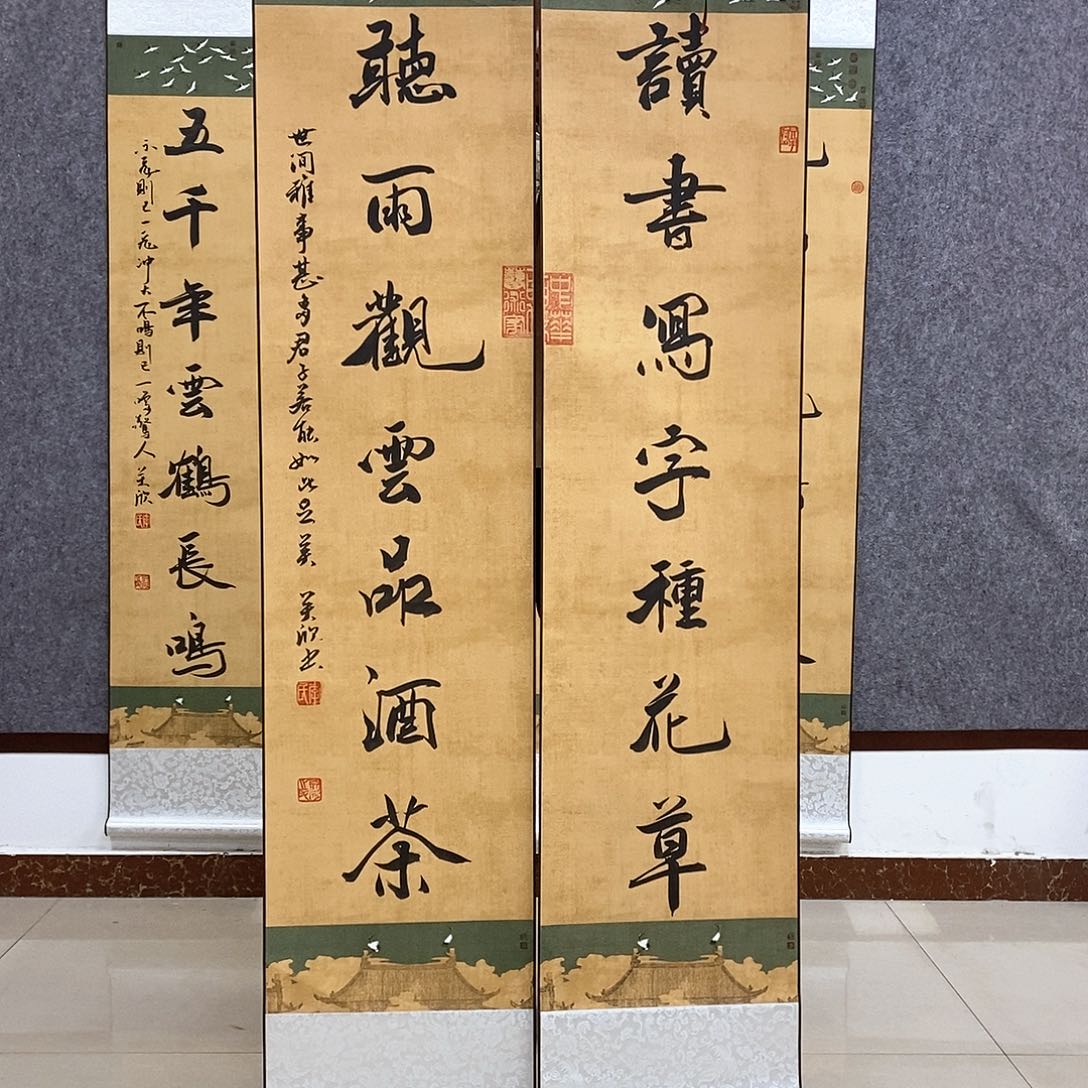 讀書寫字種花草
聽雨觀雲品酒茶
世间雅事甚多君子若能如此足矣
五千年雲鶴長鳴
不飛則已一飛冲天不鳴則已一鸣驚人